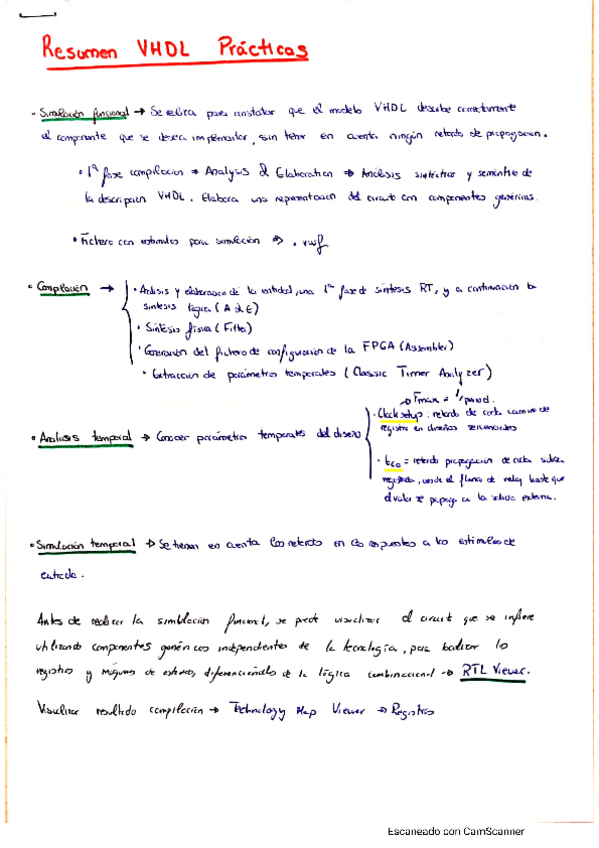 Resumen VHDL Prácticas
• Simulación funcional → Se realiza para constatar que el modelo VHDL describe correctamente
el componente que se desea implementar, sin tener en cuenta ningún retardo de propagación.
• 1ª fase compilación → Analysis & Elaboration → Análisis sintáctico y semántico de
la descripción VHDL. Elabora una representación del circuito con componentes genéricos.
• Fichero con estímulos para simulación => .vwf
• Compilación → • Análisis y elaboración de la entidad, una 1ª fase de síntesis RT, y a continuación la
síntesis lógica (A & E)
• Síntesis física (Fitter)
• Generación del fichero de configuración de la FPGA (Assembler)
• Extracción de parámetros temporales (Classic Timer Analyzer)
→ Fmax = 1/period.
• Clock setup: retardo de cada camino de
registro en diseños secuenciales
• Análisis temporal → Conocer parámetros temporales del diseño
• tco = retardo propagación de cada salida
registrada, desde el flanco de reloj hasta que
el valor se propaga a la salida externa.
• Simulación temporal → Se tienen en cuenta los retardo en las respuestas a los estímulos de
entrada.
Antes de realizar la simulación funcional, se puede visualizar el circuito que se infiere
utilizando componentes genéricos independientes de la tecnología, para localizar los
registros y máquinas de estados, diferenciándolos de la lógica combinacional → RTL Viewer.
Visualizar resultado compilación → Technology Map Viewer → Registros
Escaneado con CamScanner